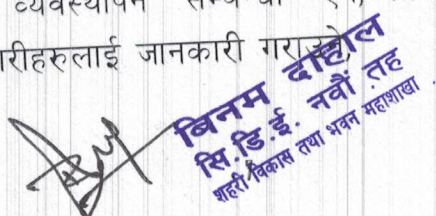 व्यवस्थापन
ारीहरुलाई जानकारी गराउने,
बिनम दाहाल
सि.डि.ई. नवौं तह
शहरी विकास तथा भवन महाशाखा